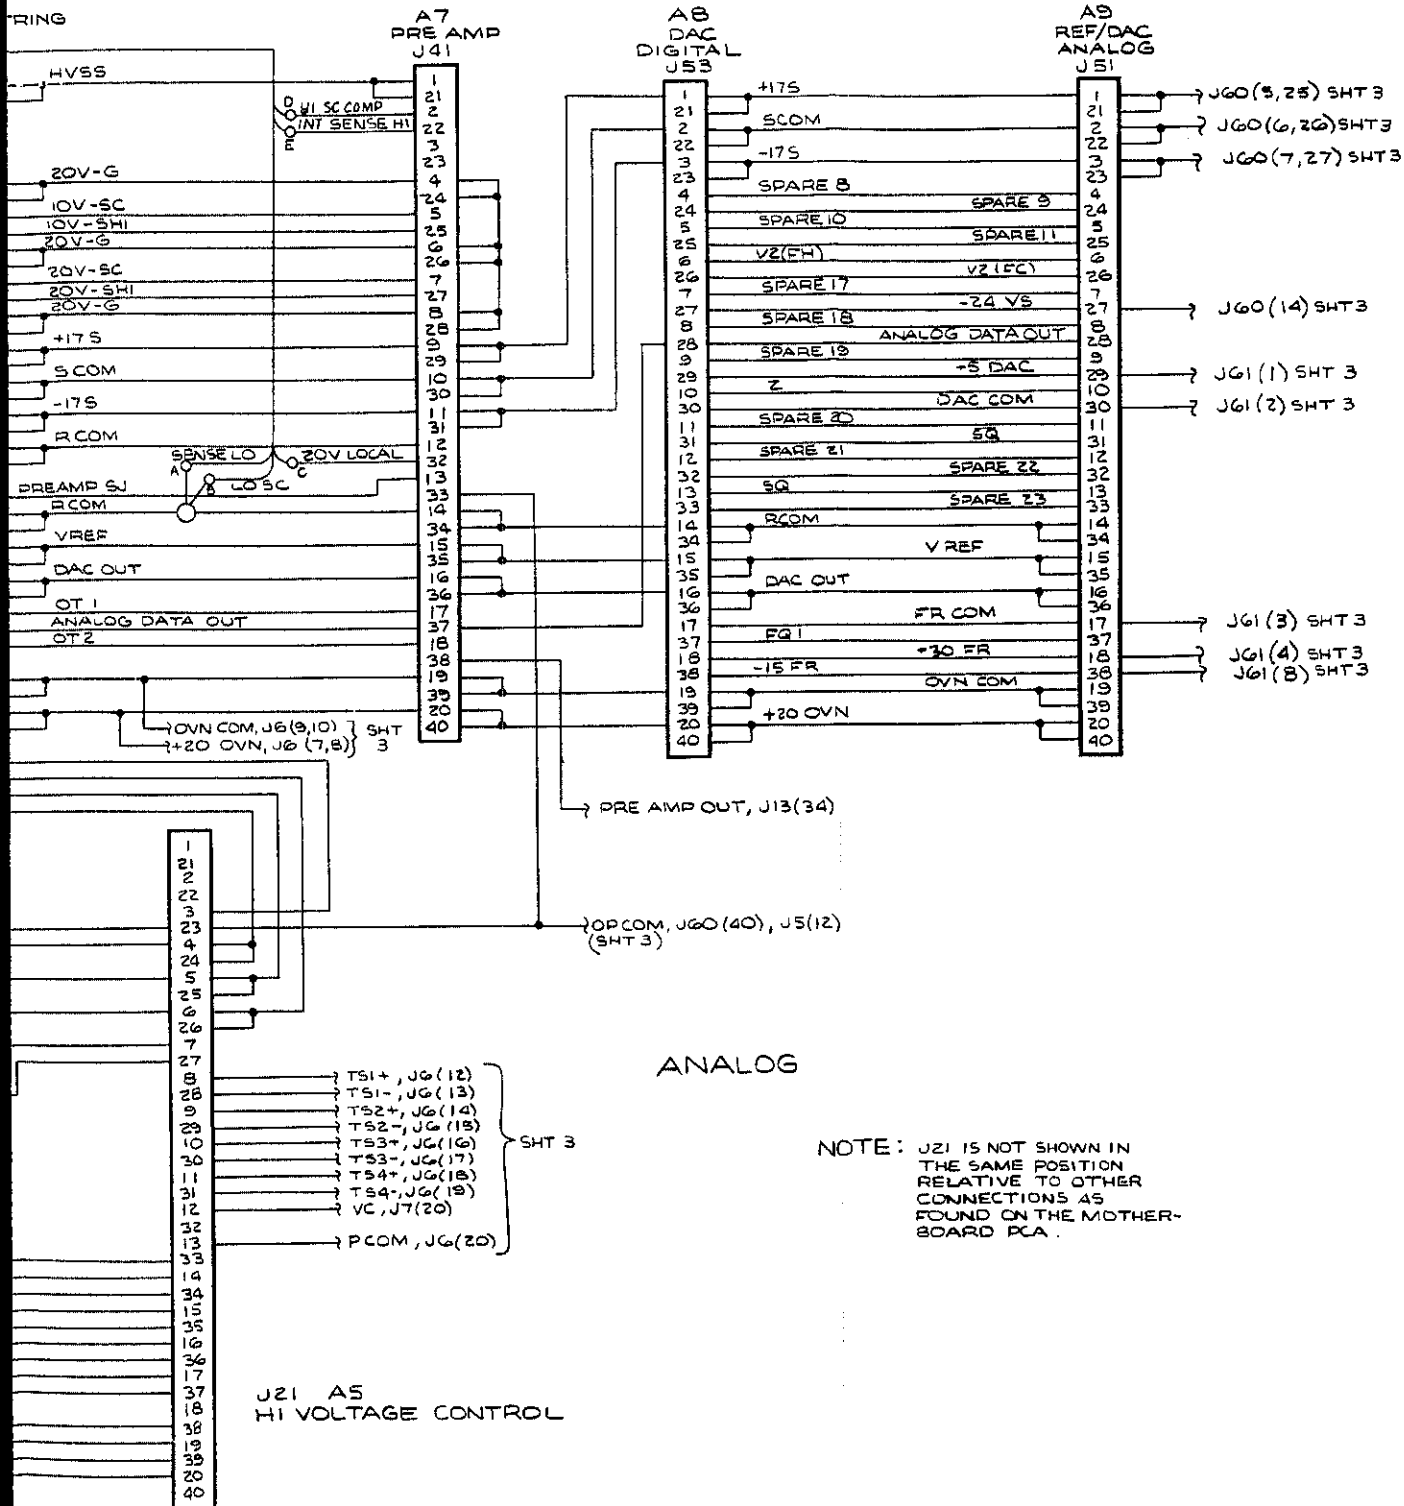 TRING
HVSS
A7
PRE AMP
J41
A8
DAC
DIGITAL
J53
A9
REF/DAC
ANALOG
J51
D
HI SC COMP
INT SENSE HI
E
20V-G
10V-SC
10V-SHI
20V-G
20V-SC
20V-SHI
20V-G
+17S
S COM
-17S
R COM
SENSE LO
A
20V LOCAL
C
B
LO SC
PREAMP SJ
RCOM
VREF
DAC OUT
OT 1
ANALOG DATA OUT
OT2
OVN COM, J6(9,10)
+20 OVN, J6 (7,8)
SHT
3
1
21
2
22
3
23
4
24
5
25
6
26
7
27
8
28
9
29
10
30
11
31
12
32
13
33
14
34
15
35
16
36
17
37
18
38
19
39
20
40
1
21
2
22
3
23
4
24
5
25
6
26
7
27
8
28
9
29
10
30
11
31
12
32
13
33
14
34
15
35
16
36
17
37
18
38
19
39
20
40
+17S
SCOM
-17S
SPARE 8
SPARE 9
SPARE 10
SPARE 11
V2(FH)
V2(FC)
SPARE 17
-24 VS
SPARE 18
ANALOG DATA OUT
SPARE 19
+5 DAC
Z
DAC COM
SPARE 20
SQ
SPARE 21
SPARE 22
SQ
SPARE 23
RCOM
V REF
DAC OUT
FR COM
FQ1
+30 FR
-15 FR
OVN COM
+20 OVN
1
21
2
22
3
23
4
24
5
25
6
26
7
27
8
28
9
29
10
30
11
31
12
32
13
33
14
34
15
35
16
36
17
37
18
38
19
39
20
40
J60(5,25) SHT 3
J60(6,26)SHT3
J60(7,27)SHT3
J60(14)SHT3
J61(1) SHT 3
J61(2) SHT 3
J61(3) SHT 3
J61(4) SHT 3
J61(8) SHT 3
PRE AMP OUT, J13(34)
OPCOM, J60(40), J5(12)
(SHT 3)
1
21
2
22
3
23
4
24
5
25
6
26
7
27
8
28
9
29
10
30
11
31
12
32
13
33
14
34
15
35
16
36
17
37
18
38
19
39
20
40
TS1+, J6(12)
TS1-, J6(13)
TS2+, J6(14)
TS2-, J6(15)
TS3+, J6(16)
TS3-, J6(17)
TS4+, J6(18)
TS4-, J6(19)
VC, J7(20)
PCOM, J6(20)
SHT 3
ANALOG
NOTE: J21 IS NOT SHOWN IN
THE SAME POSITION
RELATIVE TO OTHER
CONNECTIONS AS
FOUND ON THE MOTHER-
BOARD PCA.
J21 A5
HI VOLTAGE CONTROL